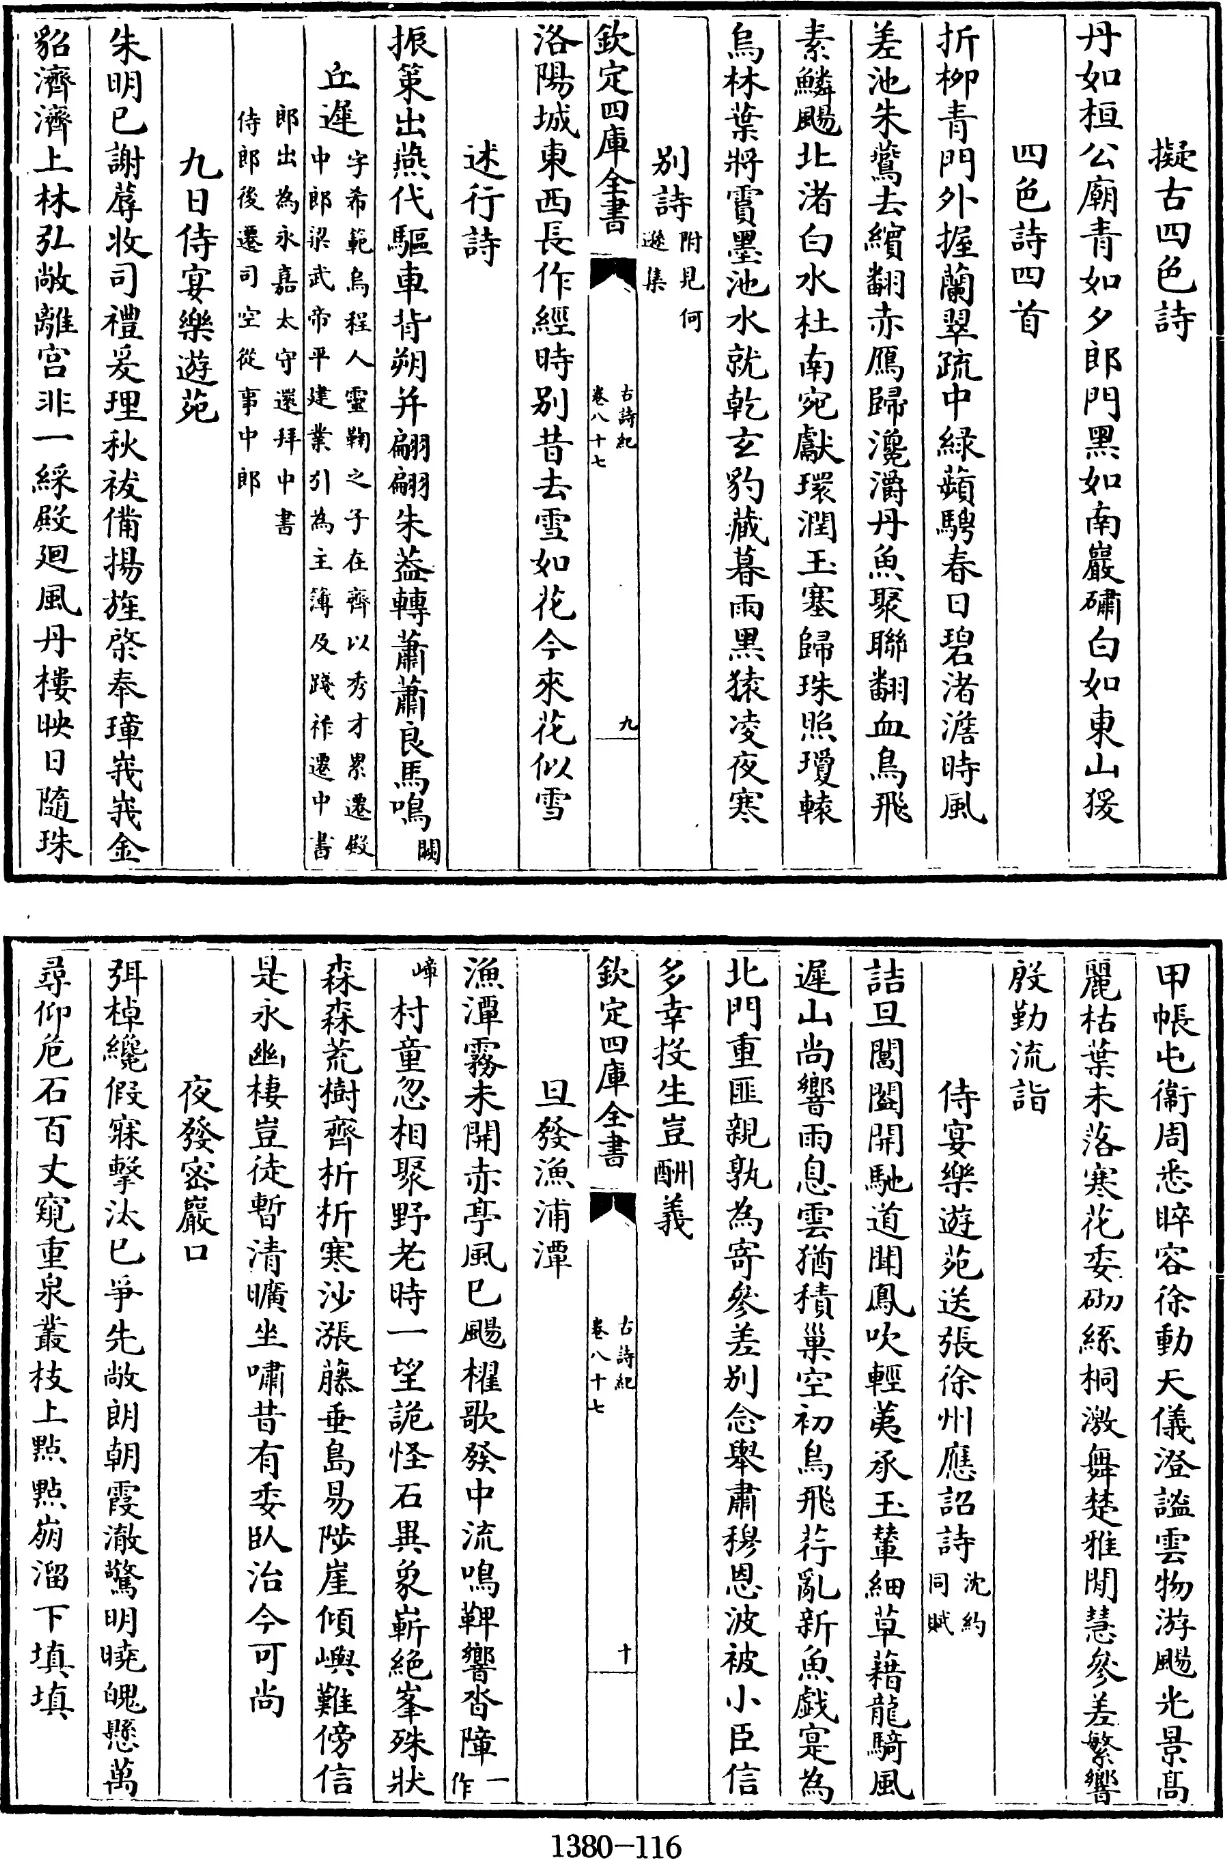 擬古四色詩
丹如桓公廟青如夕郎門黑如南巖礂白如東山猨
四色詩四首
折栁青門外握蘭翠疏中緑蘋騁春日碧渚澹時風
差池朱鷺去繽翻赤鴈歸瀺灂丹魚聚聯翻血鳥飛
素鱗颺北渚白水杜南宛獻環潤玉塞歸珠照瓊轅
烏林葉將霣墨池水就乾玄豹藏暮雨黑猿凌夜寒
别詩附見何遜集
欽定四庫全書
古詩紀
卷八十七
九
洛陽城東西長作經時别昔去雪如花今來花似雪
述行詩
振策出燕代驅車背朔并翩翩朱葢轉蕭蕭良馬鳴闕
丘遲字希範烏程人靈鞠之子在齊以秀才累遷殿中郎梁武帝平建業引為主簿及踐祚遷中書
郎出為永嘉太守還拜中書侍郎後遷司空從事中郎
九日侍宴樂遊苑
朱明已謝蓐收司禮爰理秋祓備揚旌棨奉璋峩峩金
貂濟濟上林弘敞離宫非一綵殿廻風丹樓映日隨珠
甲帳屯衞周悉睟容徐動天儀澄謐雲物游颺光景髙
麗枯葉未落寒花委砌絲桐激舞楚雅閒慧參差繁響
殷勤流詣
侍宴樂遊苑送張徐州應詔詩沈約同賦
詰旦閶闔開馳道聞鳳吹輕荑承玉輦細草藉龍騎風
遲山尚響雨息雲猶積巢空初鳥飛荇亂新魚戲寔為
北門重匪親孰為寄參差别念舉肅穆恩波被小臣信
多幸投生豈酬義
欽定四庫全書
古詩紀
卷八十七
十
旦發漁浦潭
漁潭霧未開赤亭風已颺櫂歌發中流鳴鞞響沓障一作
嶂村童忽相聚野老時一望詭怪石異象嶄絶峯殊狀
森森荒樹齊析析寒沙漲藤垂島易陟崖傾嶼難傍信
是永幽棲豈徒暫清曠坐嘯昔有委卧治今可尚
夜發密巖口
弭棹纔假寐擊汰已爭先敞朗朝霞澈驚明曉魄懸萬
尋仰危石百丈窺重泉叢枝上點點崩溜下填填
1380-116